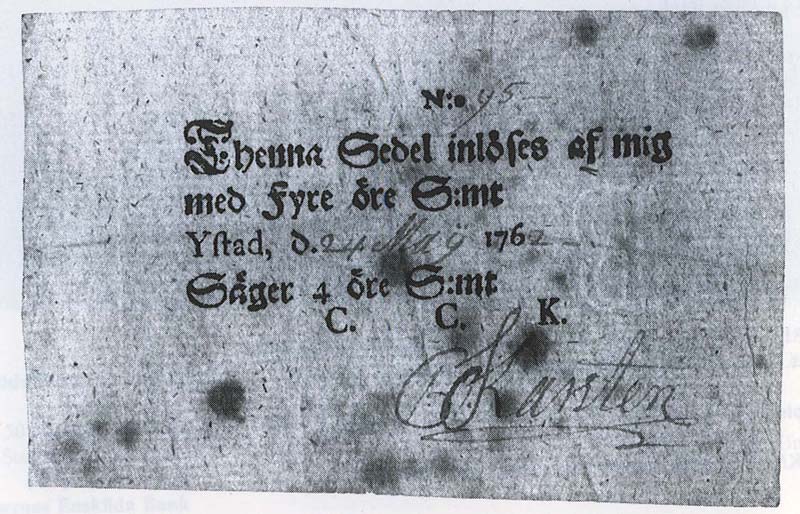 N:o 95
Thenna Sedel inlöses af mig
med Fyre öre S:mt
Ystad, d. 24 May 1762
Säger 4 öre S:mt
C. C. K.
CC Karsten